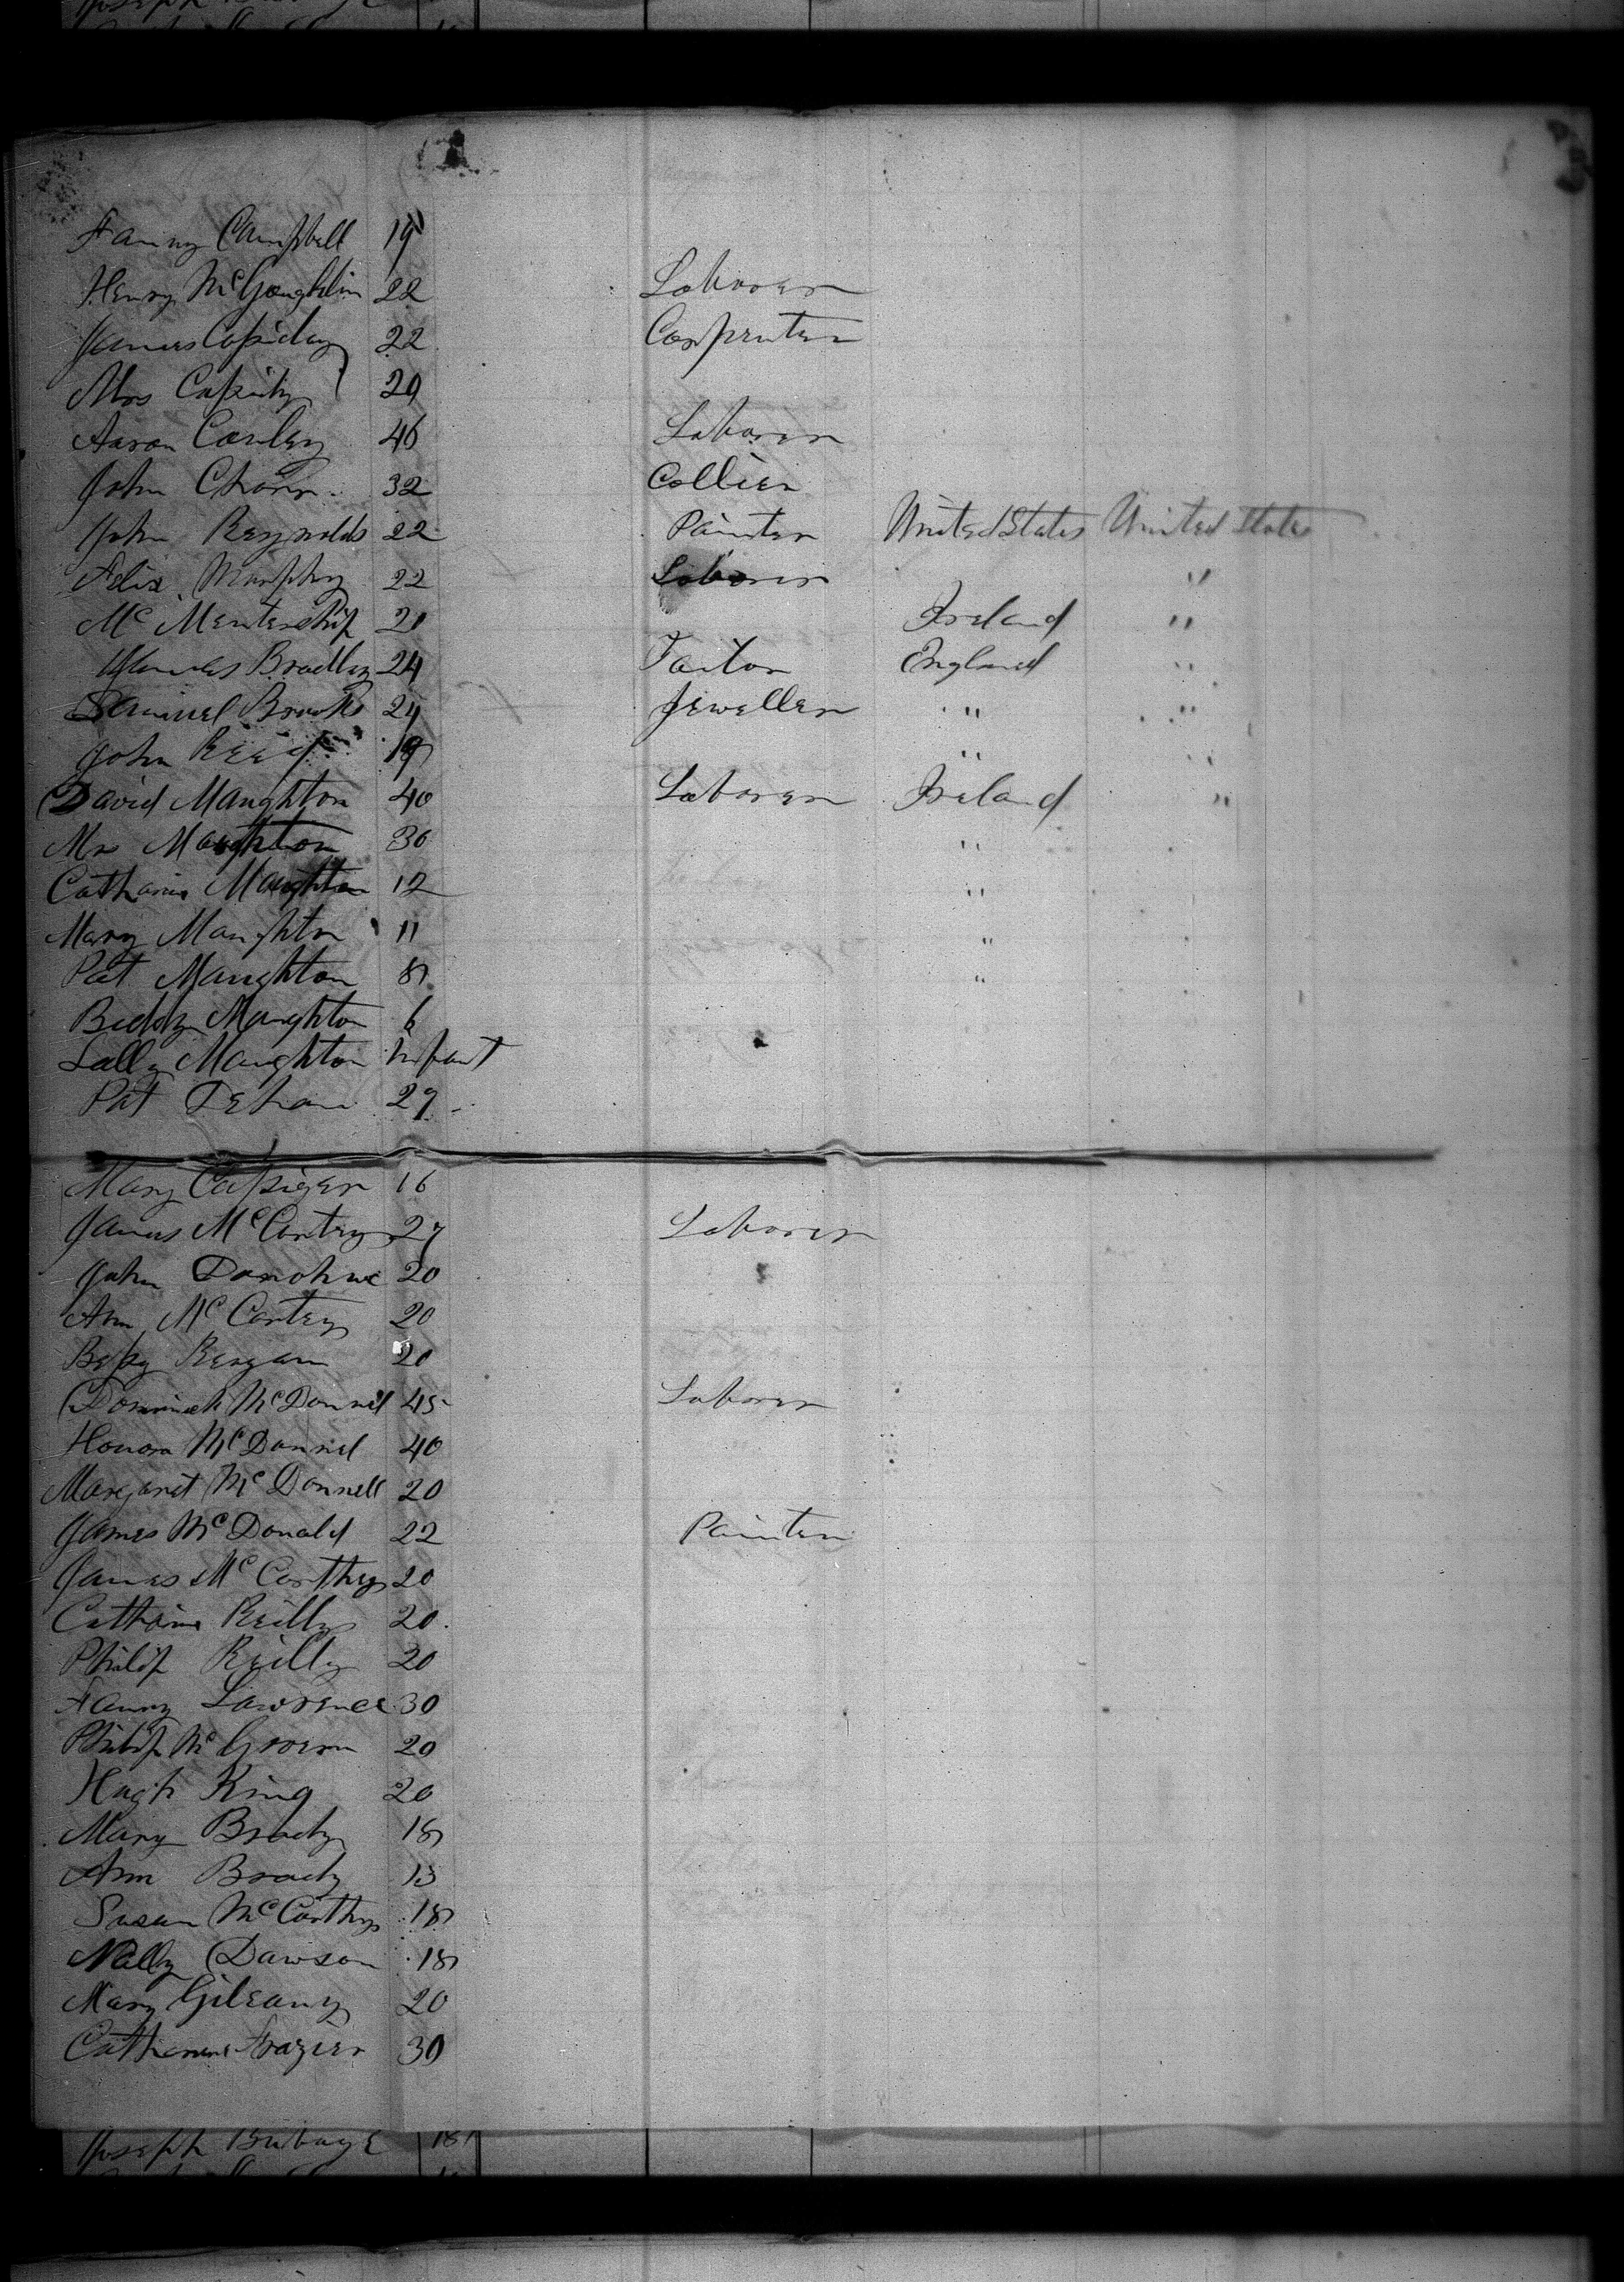 Fanny Campbell 19
Henry McGoughlin 22 Laborer
James Cassiday 22 Carpenter
Mrs Cassidy 20
Aaron Conley 46 Laborer
John 32 Collier
John Reynolds 22 Painter United States United States
Felix Murphy 22 Laborer "
Mc 21 Ireland "
James Bradley 24 Tailor England "
Samuel Brooks 24 Jeweller " "
John Reed 19 " "
David Maughton 40 Laborer Ireland "
Mrs Maughton 30 "
Catharine Maughton 12 "
Mary Maughton 11 "
Pat Maughton 8 "
Biddy Maughton 6
Sally Maughton Infant
Pat 27
Mary 16
James McCartey 27 Laborer
John Donohue 20
Ann McCartey 20
Bessy Reagan 20
Dominick McDonnel 45 Laborer
Honora McDonnel 40
Margaret McDonnell 20
James McDonald 22 Painter
James McCarthy 20
Catharine Reilly 20
Philip Reilly 20
Fanny Lawrence 30
Philip McGovern 20
Hugh King 20
Mary Brady 18
Ann Brady 13
Susan McCarthy 18
Nelly Dawson 18
Mary Gileany 20
Catharine Frazier 30
Joseph 18